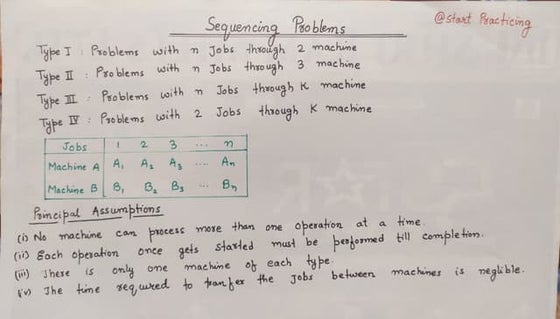 Sequencing Problems
@start Practicing
Type I : Problems with n Jobs through 2 machine
Type II : Problems with n Jobs through 3 machine
Type III : Problems with n Jobs through K machine
Type IV : Problems with 2 Jobs through K machine
Jobs 1 2 3 ... n
Machine A A₁ A₂ A₃ .... An
Machine B B₁ B₂ B₃ ... Bn
Principal Assumptions
(i) No machine can process more than one operation at a time.
(ii) Each operation once gets started must be performed till completion.
(iii) There is only one machine of each type.
(iv) The time required to tranfer the Jobs between machines is neglible.